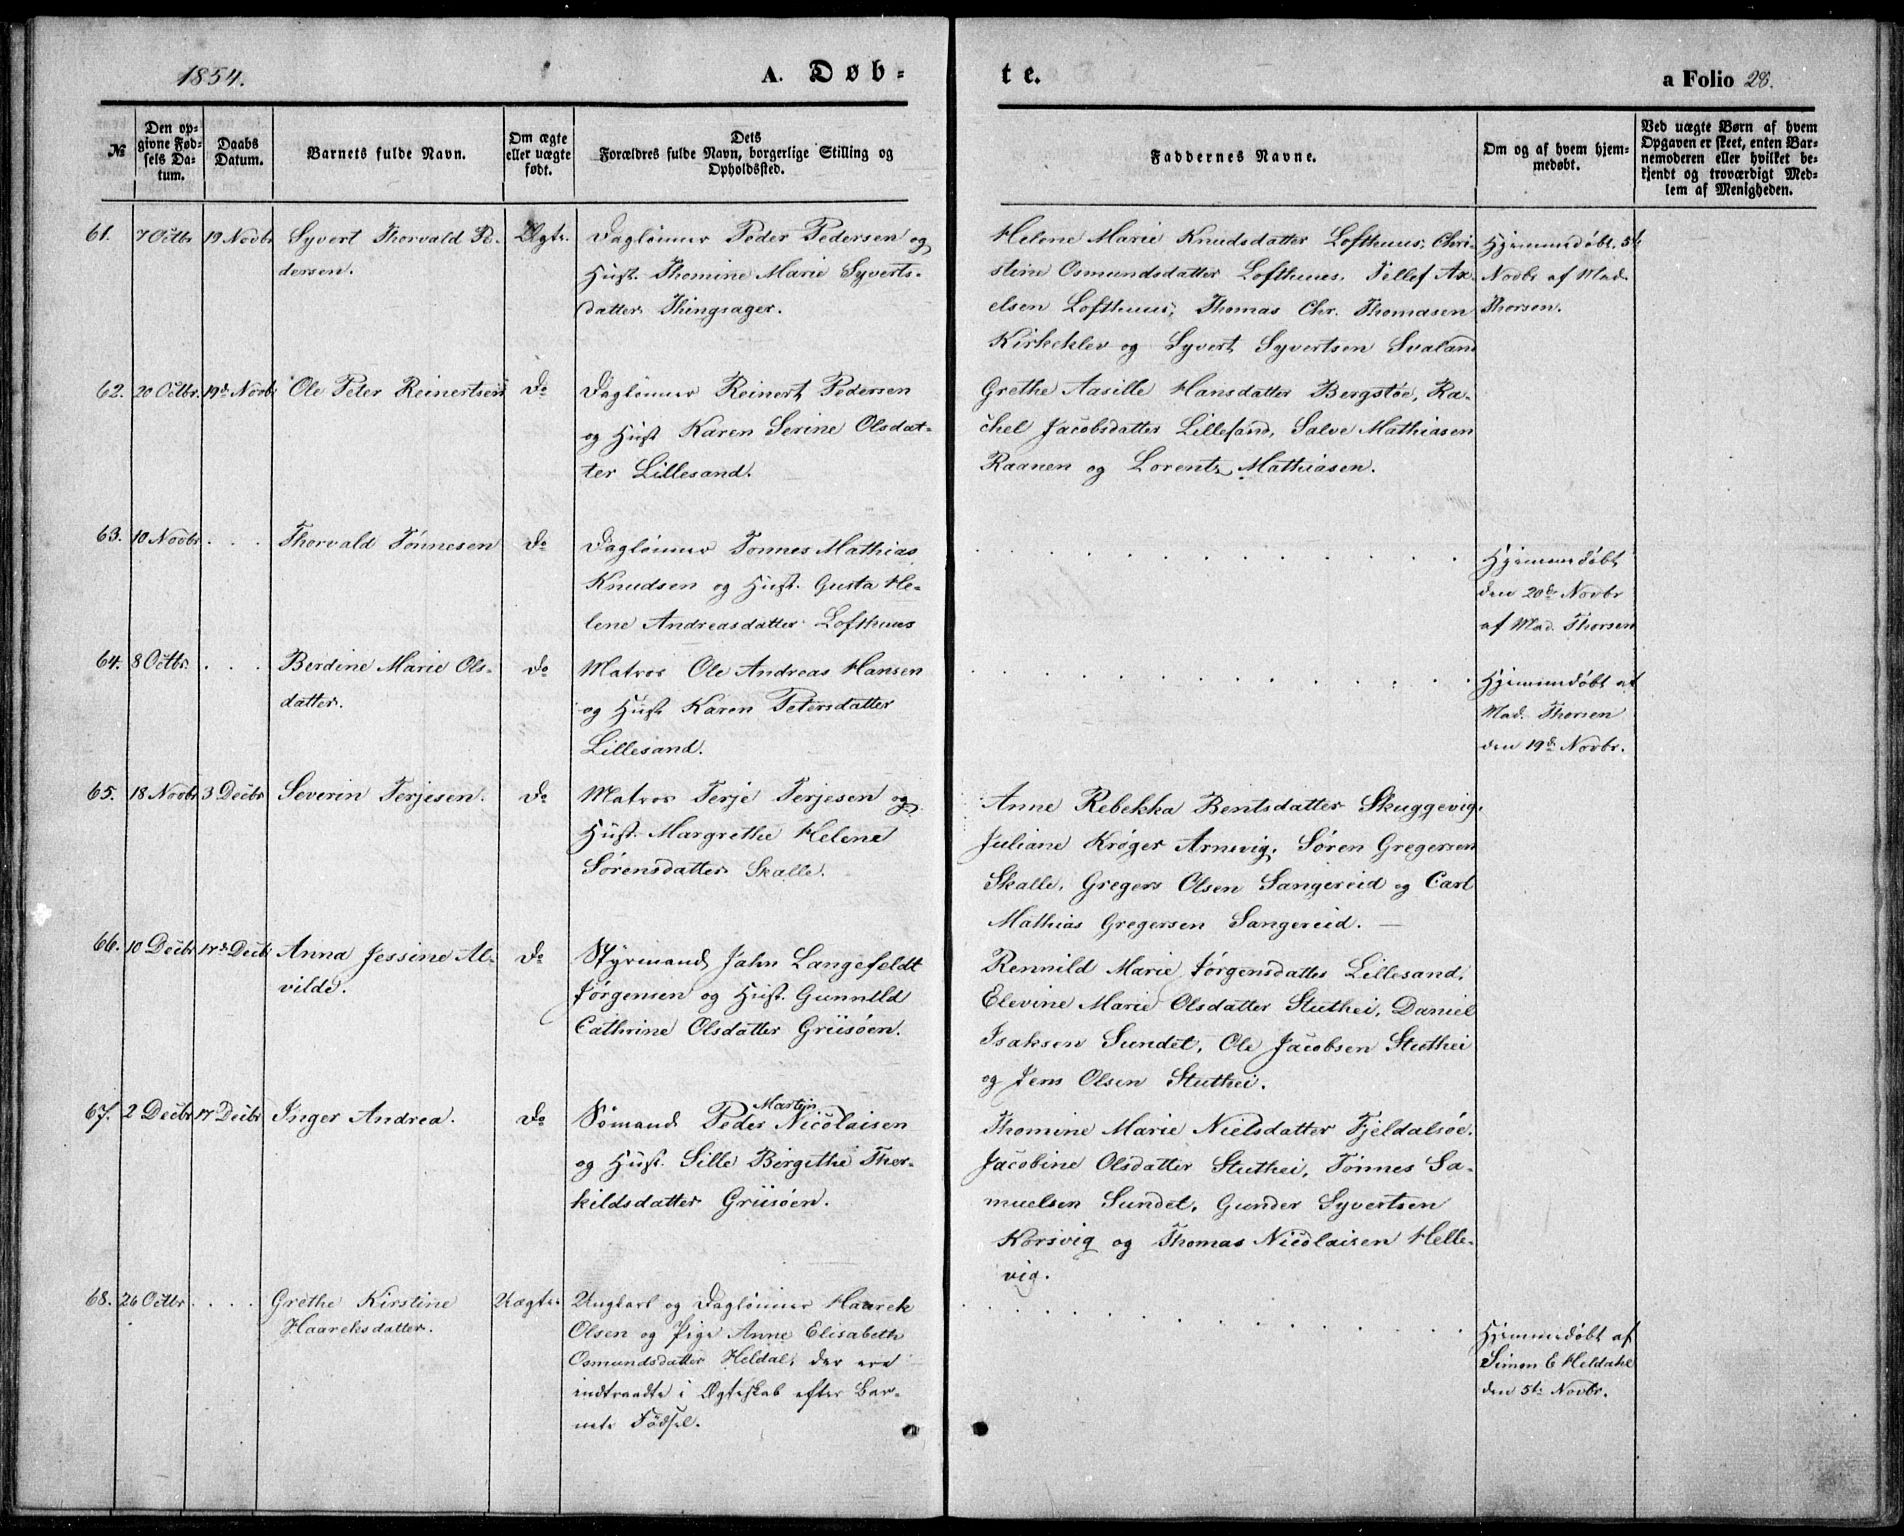 1854.
A. Døb-
te.
a Folio 28.
№
Den op-
givne Fød-
sels Da-
tum.
Daabs
Datum.
Barnets fulde Navn.
Om ægte
eller uægte
født.
Dets
Forældres fulde Navn, borgerlige Stilling og
Opholdssted.
Faddernes Navne.
Om og af hvem hjem-
medøbt.
Ved uægte Børn af hvem
Opgaven er skeet, enten Bar-
nemoderen eller hvilket be-
kjendt og troværdigt Med-
lem af Menigheden.
61. 7 Octbr 19 Novbr Syvert Thorvald Pe-
dersen.
Ægte.
Daglønner Peder Pedersen og
Hust. Thomine Marie Syverts-
datter Thingsager.
Helene Marie Knudsdatter Lofthuus, Chri-
stine Osmundsdatter Lofthuus, Tellef Ax-
elsen Lofthuus, Thomas Chr. Thomasen
Kirkeklev og Syvert Syvertsen Svaland
Hjemmedøbt 5te
Novbr af Mad.
Thorsen.
62. 20 Octbr. 19de Novbr Ole Peter Reinertsen
Do
Daglønner Reinert Pedersen
og Hust Karen Serine Olsdat-
ter Lillesand.
Grethe Aasille Hansdatter Bergstøe, Ra-
chel Jacobsdatter Lillesand, Salve Mathiasen
Raanen og Lorentz Mathiasen.
63. 10 Novbr . . . Thorvald Tønnesen
Do
Daglønner Tønnes Mathias
Knudsen og Hust. Gusta He-
lene Andreasdatter Lofthuus
Hjemmedøbt
den 20de Novbr
af Mad. Thorsen
64. 8 Octbr. . . . Berdine Marie Ols-
datter.
Do
Matros Ole Andreas Hansen
og Hust Karen Petersdatter
Lillesand.
Hjemmedøbt af
Mad. Thorsen
den 19de Novbr.
65. 18 Novbr 3 Decbr Severin Terjesen.
Do
Matros Terje Terjesen og
Hust. Margrethe Helene
Sørensdatter Skalle.
Anne Rebekka Bentsdatter Skuggevig,
Juliane Krøger Arnevig, Søren Gregersen
Skalle, Gregers Olsen Sangereid og Carl
Mathias Gregersen Sangereid. —
66. 10 Decbr 17de Decbr Anna Jessine Al-
vilde.
Do
Styrmand Jahn Langefeldt
Jørgensen og Hust. Gunnild
Cathrine Olsdatter Griisøen.
Rennild Marie Jørgensdatter Lillesand,
Elevine Marie Olsdatter Stuthei, Daniel
Isaksen Sundet, Ole Jacobsen Stuthei
og Jens Olsen Stuthei.
67. 2 Decbr 17 Decbr Inger Andrea.
Do
Martin
Sømand Peder Nicolaisen
og Hust. Sille Birgithe Ther-
kildsdatter Griisøen.
Thomine Marie Nielsdatter Fjeldalsøe,
Jacobine Olsdatter Stuthei, Tønnes Sa-
muelsen Sundet, Gunder Syvertsen
Korsvig og Thomas Nicolaisen Helle-
vig.
68. 26 Octbr. . . . Grethe Kirstine
Haareksdatter.
Uægte.
Ungkarl og Daglønner Haarek
Olsen og Pige Anne Elisabeth
Osmundsdatter Heldal, der ere
indtraadte i Ægteskab efter Bar-
nets Fødsel.
Hjemmedøbt af
Simon E Heldahl
den 5te Novbr.